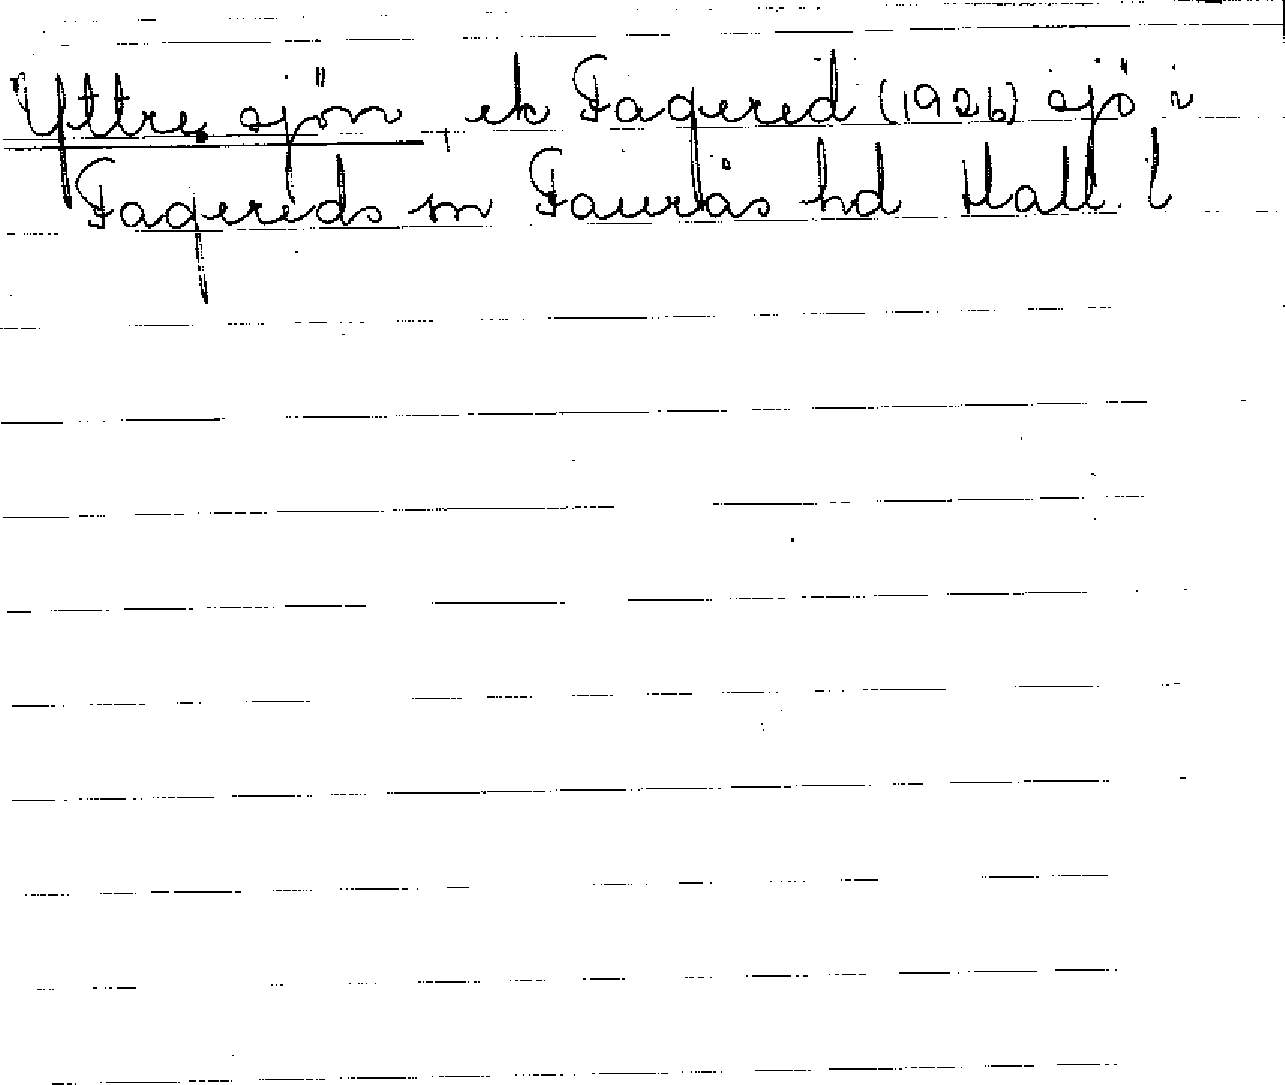 Yttre sjön, ek Fagered (1926) sjö i
Fagereds sn Faurås hd Hall. l